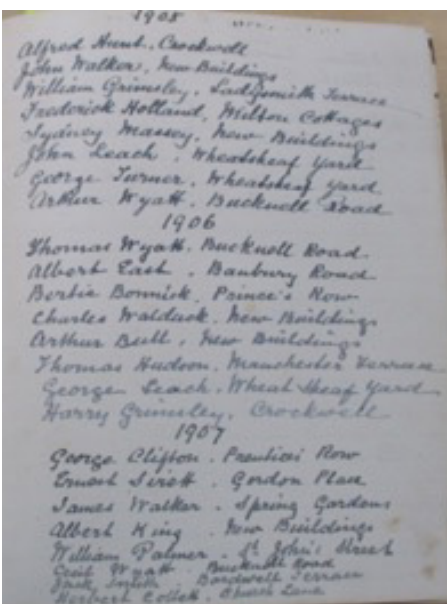 1905
Alfred Hunt. Crockwell
John Walker, New Buildings
William Grimsley, Ladysmith Terrace
Frederick Holland, Milton Cottages
Sydney Massey, New Buildings
John Leach, Wheatsheaf Yard
George Turner, Wheatsheaf Yard
Arthur Wyatt, Bucknell Road
1906
Thomas Wyatt. Bucknell Road
Albert East. Banbury Road
Bertie Bonnick. Prince's Row
Charles Walduck. New Buildings
Arthur Bull, New Buildings
Thomas Hudson, Manchester Terrace
George Leach. Wheat Sheaf Yard
Harry Grimsley, Crockwell
1907
George Clifton. Row
Ernest Sirett. Gordon Place
James Walker. Spring Gardens
Albert King. New Buildings
William Palmer. St John's Street
Cecil Wyatt. Bucknell Road
Jack Smith. Terrace
Herbert Church Lane